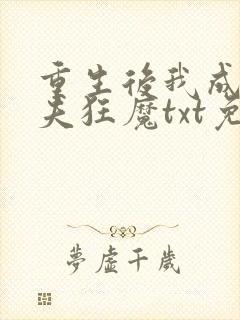 重生後我成
夫狂魔txt免
夢虛千歲